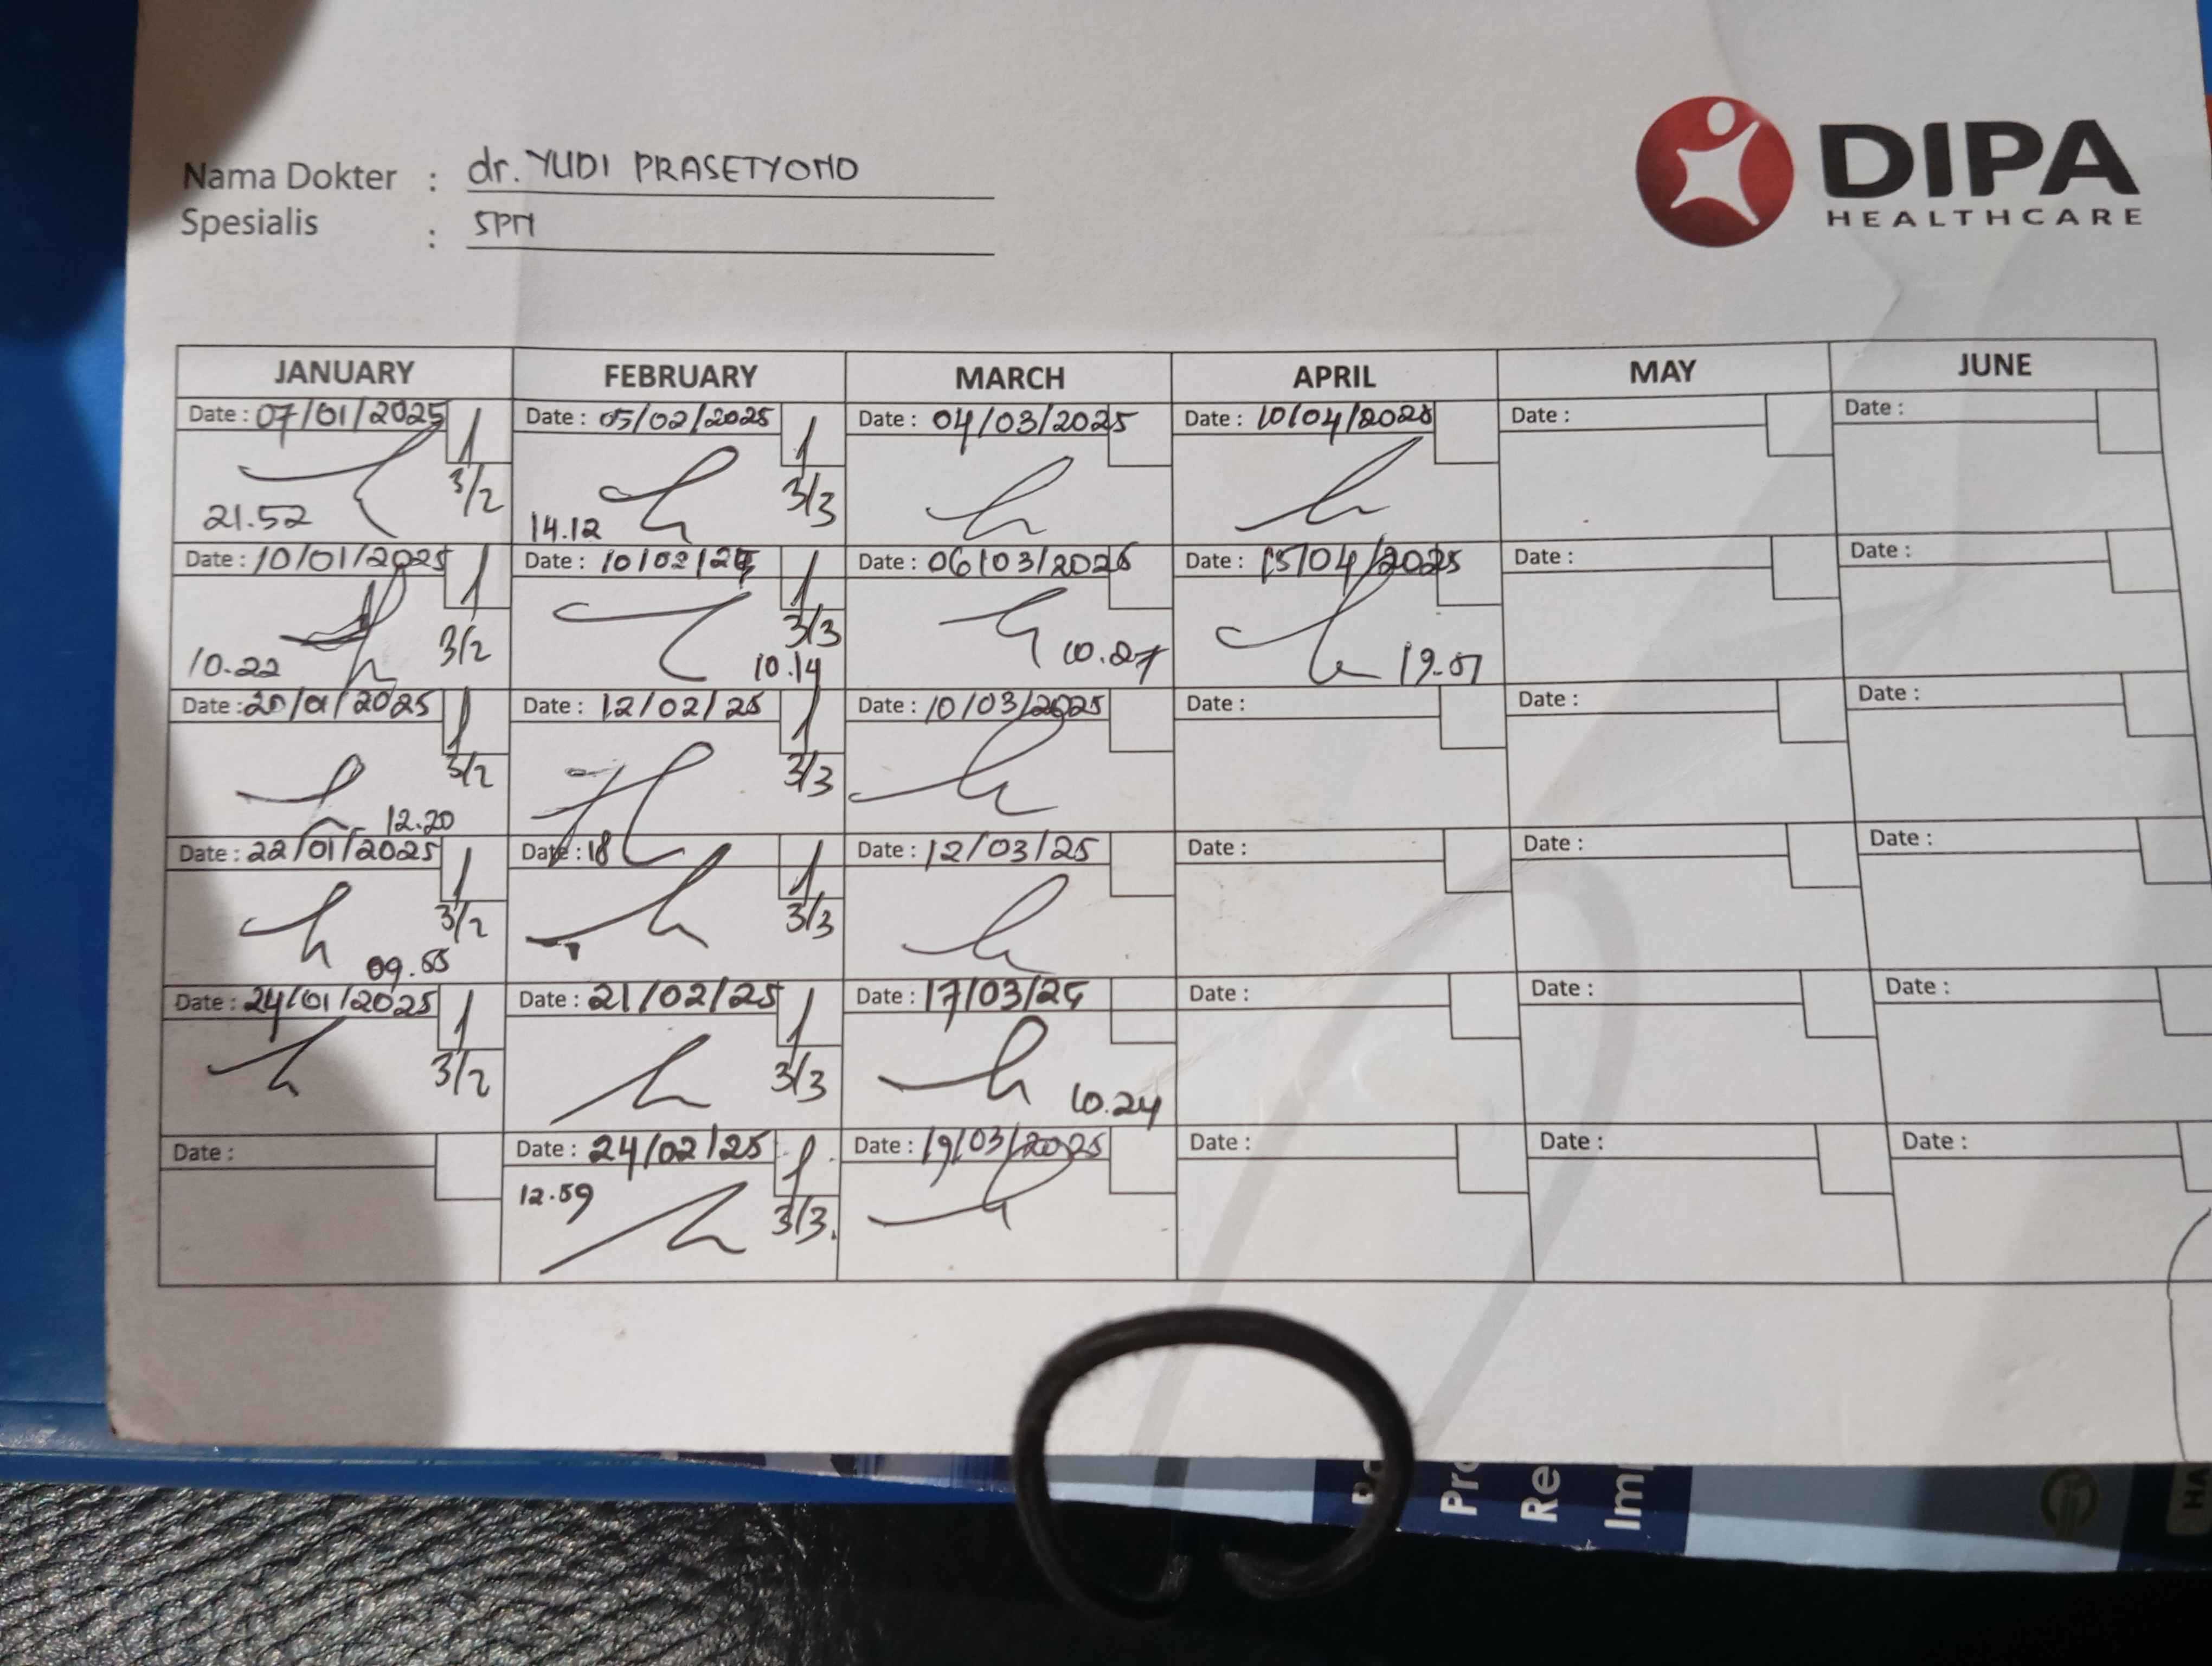 DIPA
HEALTHCARE
Nama Dokter : dr. YUDI PRASETYONO
Spesialis : SPM
JANUARY FEBRUARY MARCH APRIL MAY JUNE
Date : 07/01/2025 Date : 05/02/2025 Date : 04/03/2025 Date : 10/04/2025 Date : Date :
3/2 3/3
21.52 14.12
Date : 10/01/2025 Date : 10/02/25 Date : 06/03/2025 Date : 15/04/2025 Date : Date :
3/2 3/3
10.22 10.14 10.27 19.07
Date : 20/01/2025 Date : 12/02/25 Date : 10/03/2025 Date : Date : Date :
3/2 3/3
12.20
Date : 22/01/2025 Date : 18 Date : 12/03/25 Date : Date : Date :
3/2 3/3
09.55
Date : 24/01/2025 Date : 21/02/25 Date : 17/03/25 Date : Date : Date :
3/2 3/3
10.24
Date : Date : 24/02/25 Date : 19/03/2025 Date : Date : Date :
12.59
3/3.
Pr
Re
Im